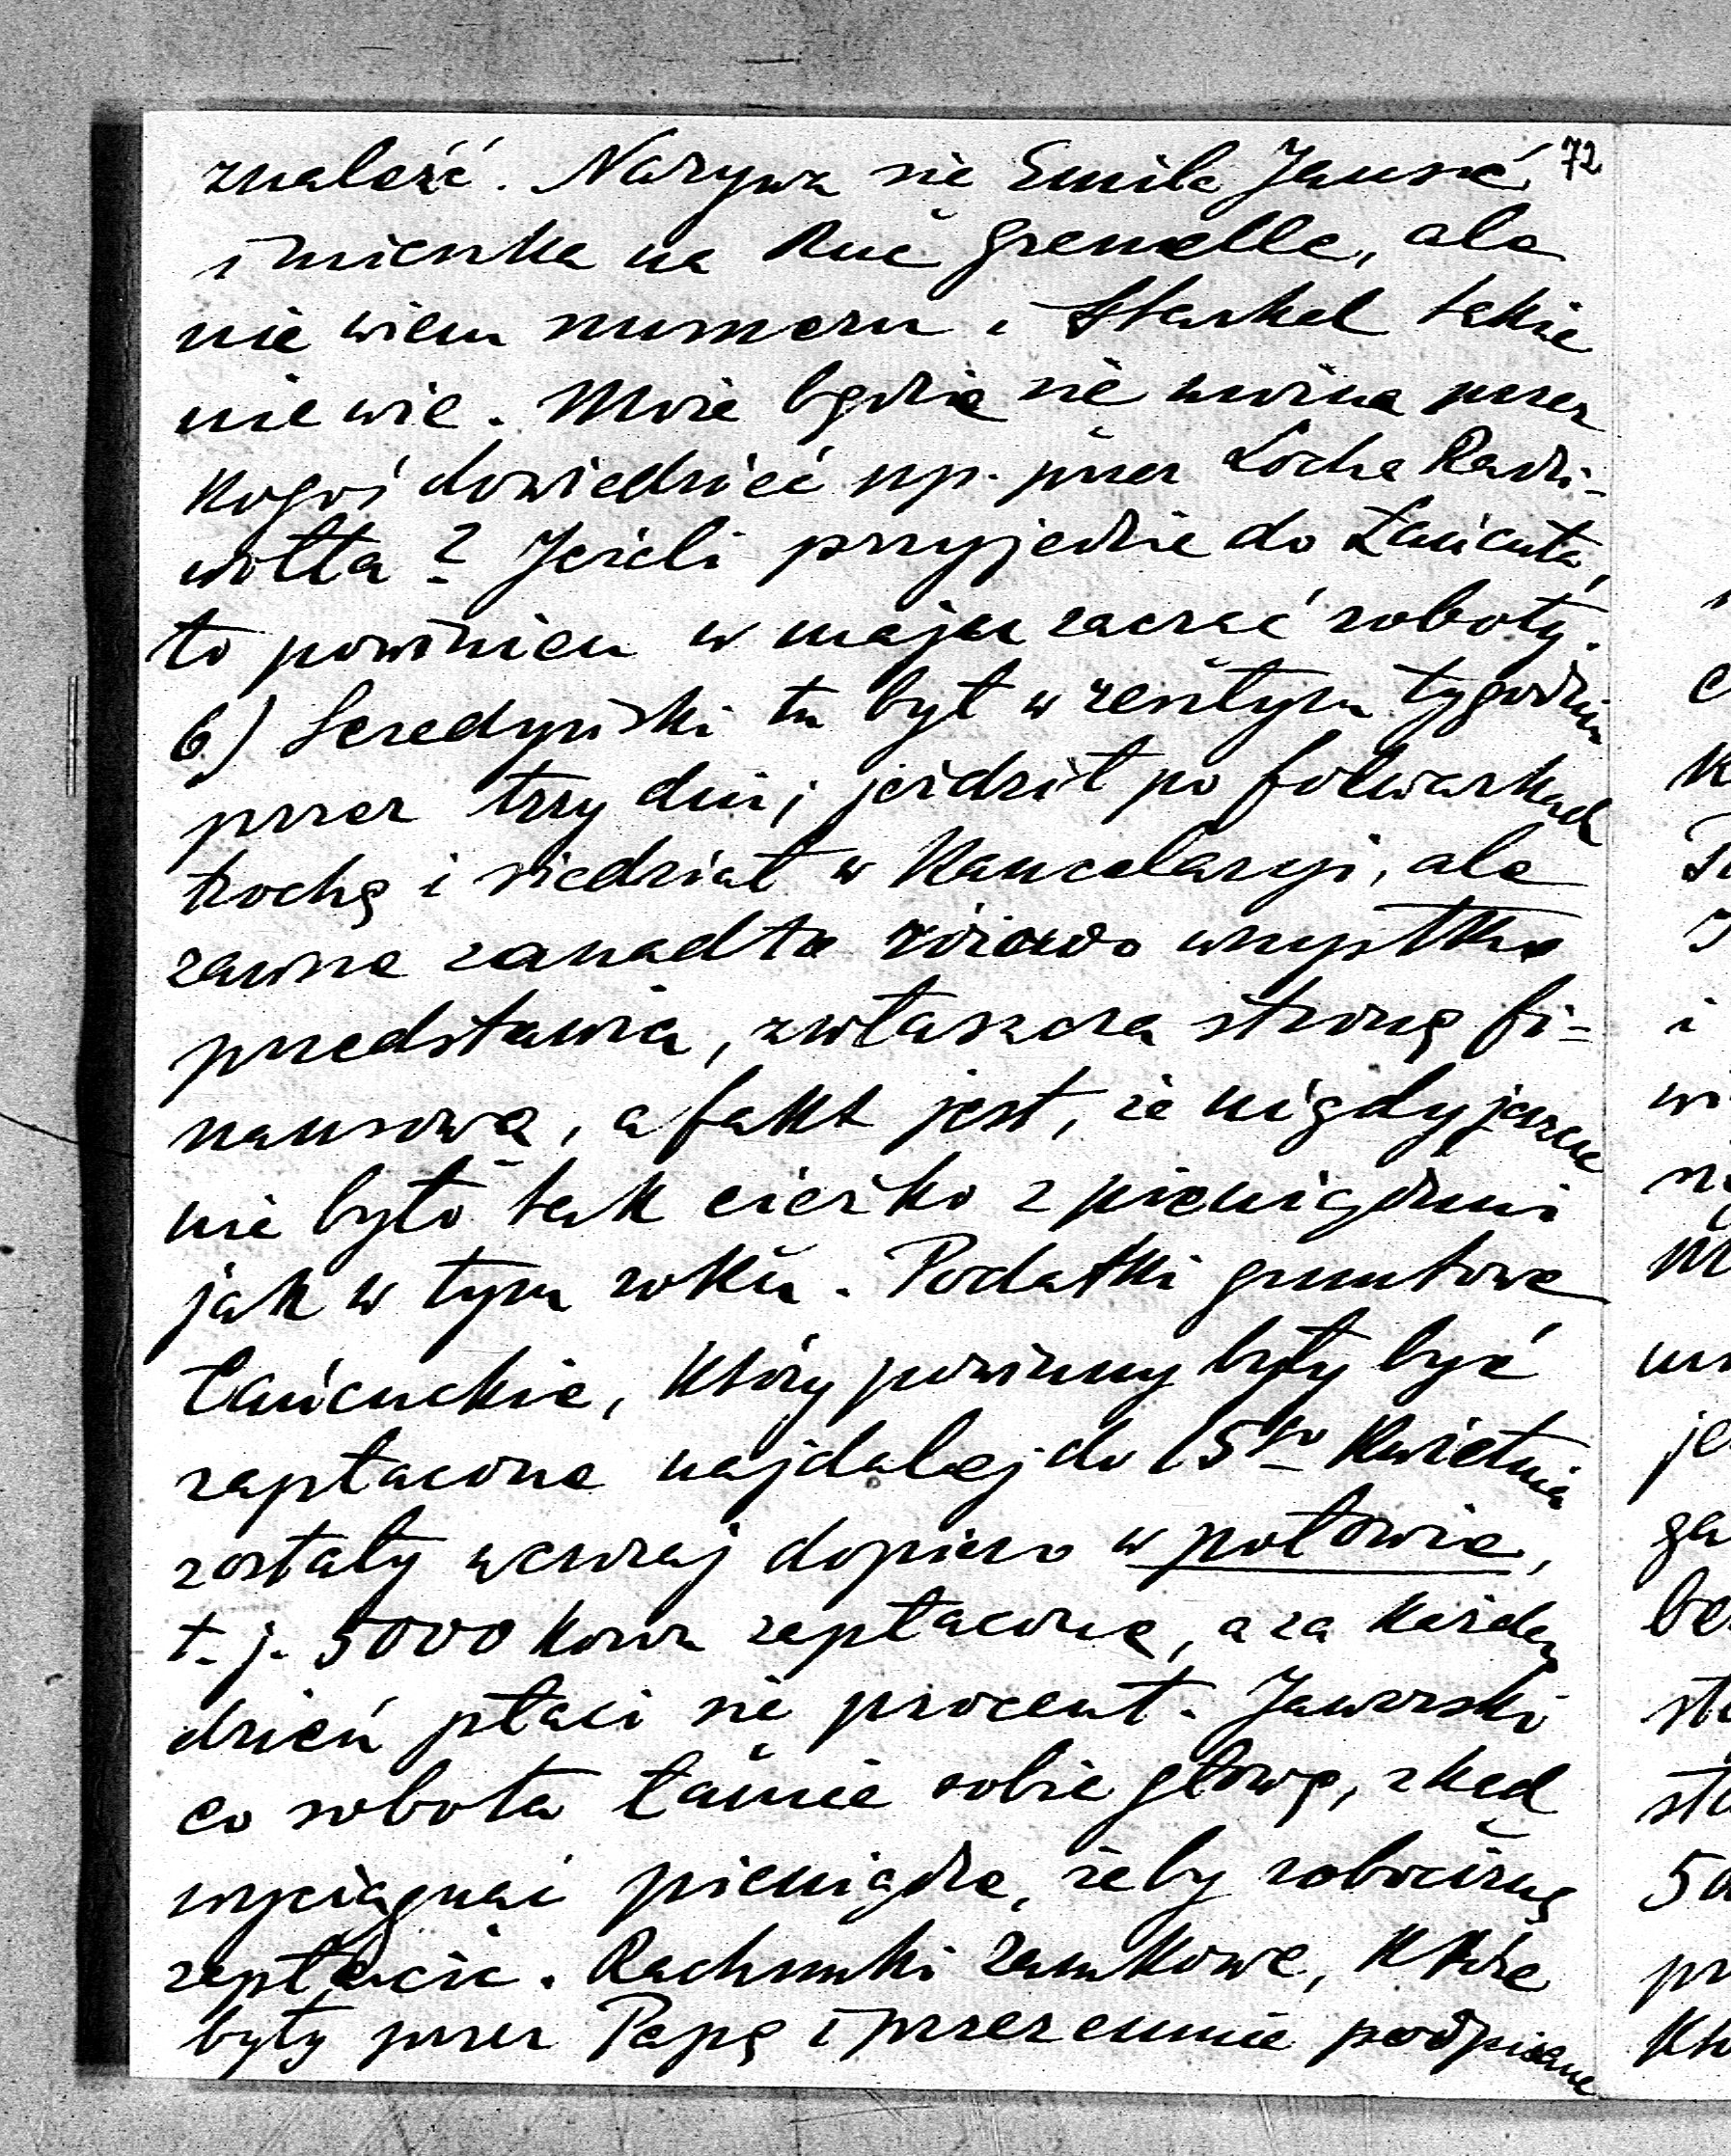 znaleźć. Nazywa się Emile Jansé 72
i mieszka na Rue Grenelle, ale
nie wiem numeru i Starkel także
nie wie. Może będzie się można przez
kogoś dowiedzieć np. przez Locha Radzi-
wołła? Jeżeli przyjedzie do Łańcuta,
to powinien w maju zacząć roboty.
6) Seredyński tu był w zeszłym tygodniu
przez trzy dni; jeździł po folwarkach
trochę i siedział w Kancelaryi, ale
zawsze zanadto różowo wszystko
przedstawia, zwłaszcza stronę fi=
nansową, a fakt jest, że nigdy jeszcze
nie było tak ciężko z pieniędzmi
jak w tym roku. Podatki gruntowe
łańcuckie, który powinny były być
zapłacone najdalej do 15go Kwietnia
zostały wczoraj dopiero w połowie,
t. j. 5000 koron zapłacone, a za każden
dzień płaci się procent. Jaworski
co sobota łamie sobie głowę, zkąd
wyciągnąć pieniądze, żeby robociznę
zapłacić. Rachunki zamkowe, które
były przez Papę i przezemnie podpisane